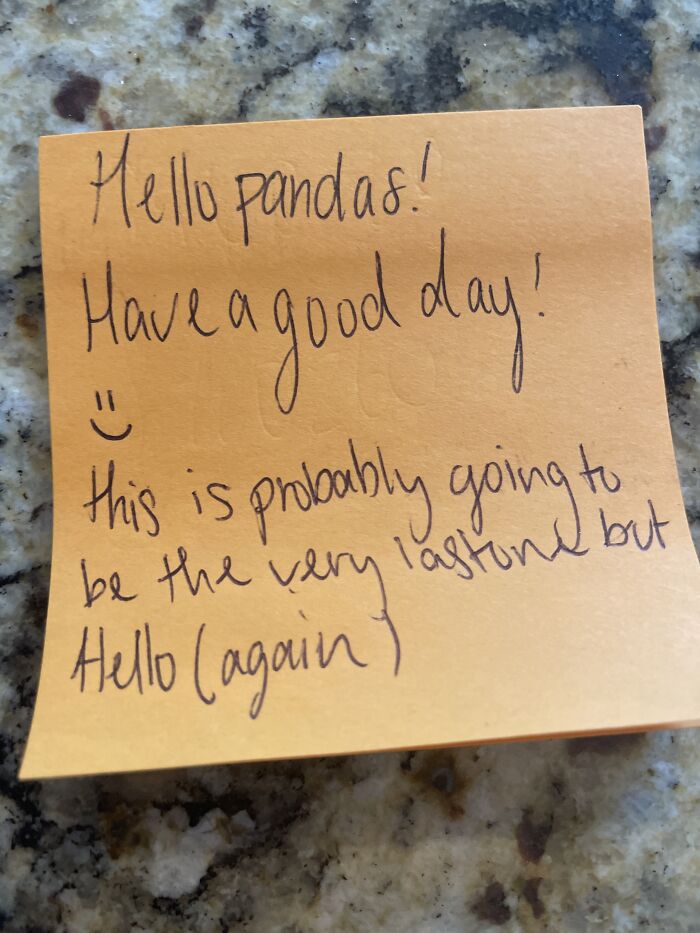 Hello pandas!
Have a good day!
:)
this is probably going to
be the very last one but
Hello (again)